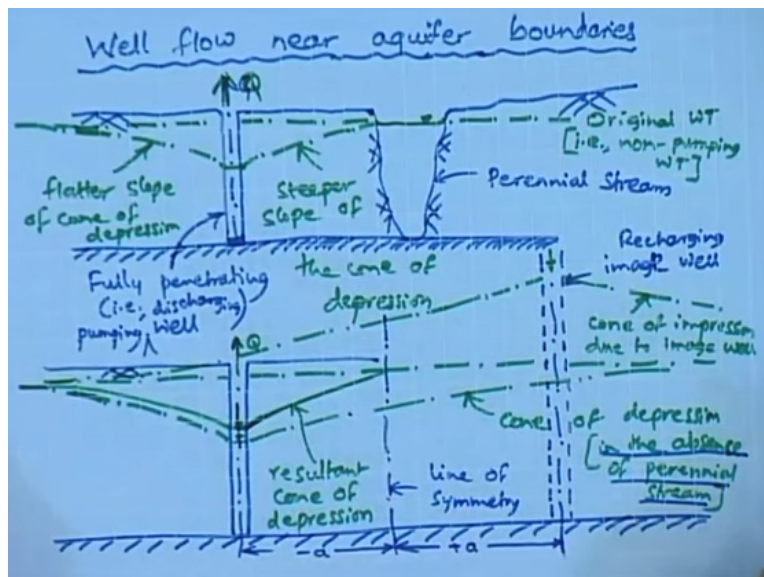 Well flow near aquifer boundaries
Q
Original WT
[i.e., non-pumping
WT]
flatter slope
of cone of
depression
steeper
slope of
the cone of
depression
Perennial stream
Fully penetrating
(i.e., discharging)
pumping well
Recharging
image well
Q
cone of impression
due to image well
cone of depression
[in the absence
of perennial
stream]
resultant
cone of
depression
line of
symmetry
-a
+a